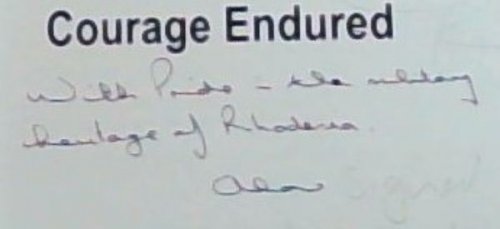 Courage Endured
With Pride - the military
heritage of Rhodesia.
signed